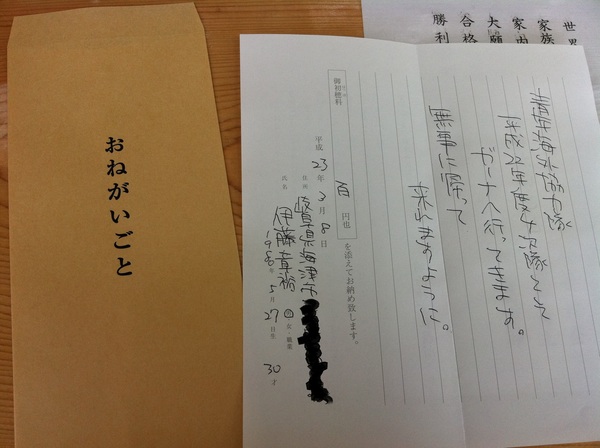 おねがいごと
世
家族
家内
大願
合格
勝利
青年海外協力隊
平成22年度4次隊として
ガーナへ行ってきます。
無事に帰って
来れますように。
御初穂料 百 円也 を添えてお納め致します。
平成 23 年 3 月 8 日
住所 岐阜県海津市
氏名 伊藤
1980年 5月 27日生 30才
男 女・職業